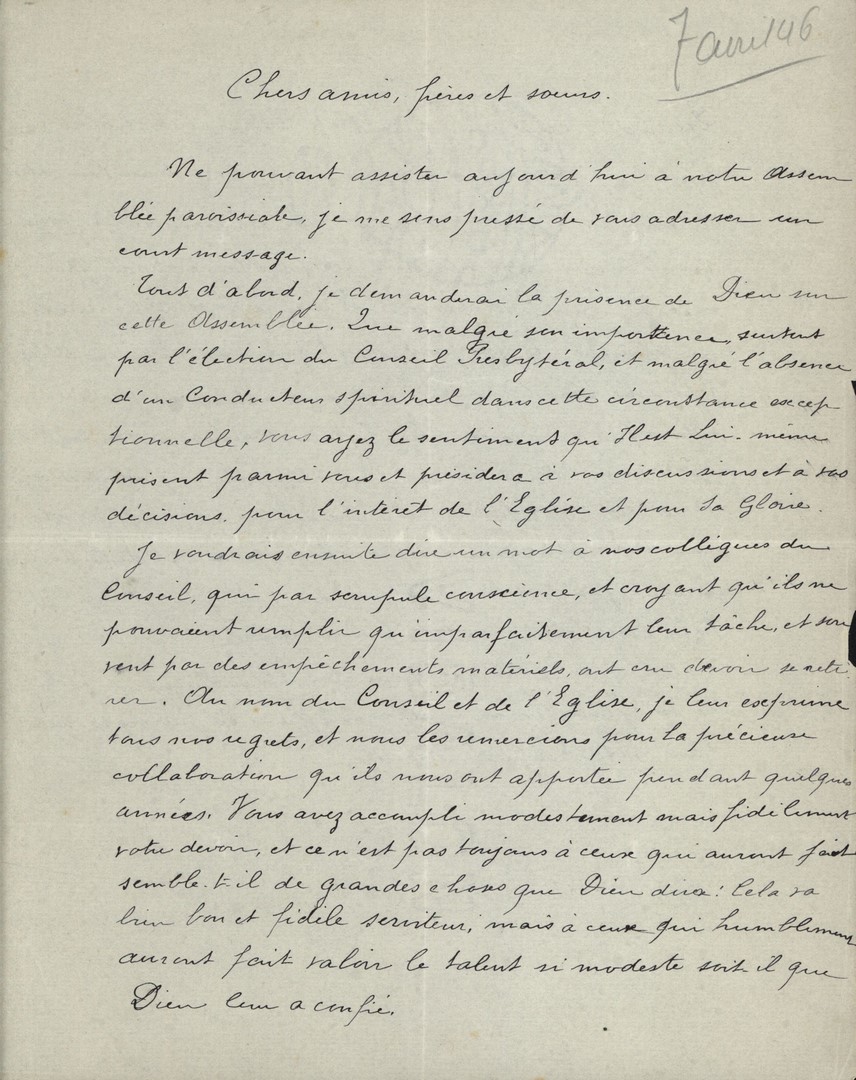 7 avril 46
Chers amis, frères et soeurs.
Ne pouvant assister aujourd'hui à notre Assem
blée paroissiale, je me sens pressé de vous adresser un
court message.
Tout d'abord, je demanderai la présence de Dieu sur
cette Assemblée. Que malgré son importence, surtout
par l'élection du Conseil Presbytéral, et malgré l'absence
d'un Conducteur spirituel dans cette circonstance excep
tionnelle, vous ayez le sentiment qu'Il est Lui-même
présent parmi vous et présidera à vos discussions et à vos
décisions. pour l'intérêt de l'Eglise et pour Sa Gloire.
Je voudrais ensuite dire un mot à nos collègues du
Conseil, qui par scrupule conscience, et croyant qu'ils ne
pouvaient remplir qu'imparfaitement leur tâche, et sou
vent par des empêchements matériels, ont cru devoir se reti
rer. Au nom du Conseil et de l'Eglise, je leur exprime
tous nos regrets, et nous les remercions pour la précieuse
collaboration qu'ils nous ont apportée pendant quelques
années. Vous avez accompli modestement mais fidèlement
votre devoir, et ce n'est pas toujours à ceux qui auront fait
semble-t-il de grandes choses que Dieu dira: Cela va
bien bon et fidèle serviteur, mais à ceux qui humblement
auront fait valoir le talent si modeste soit-il que
Dieu leur a confié.